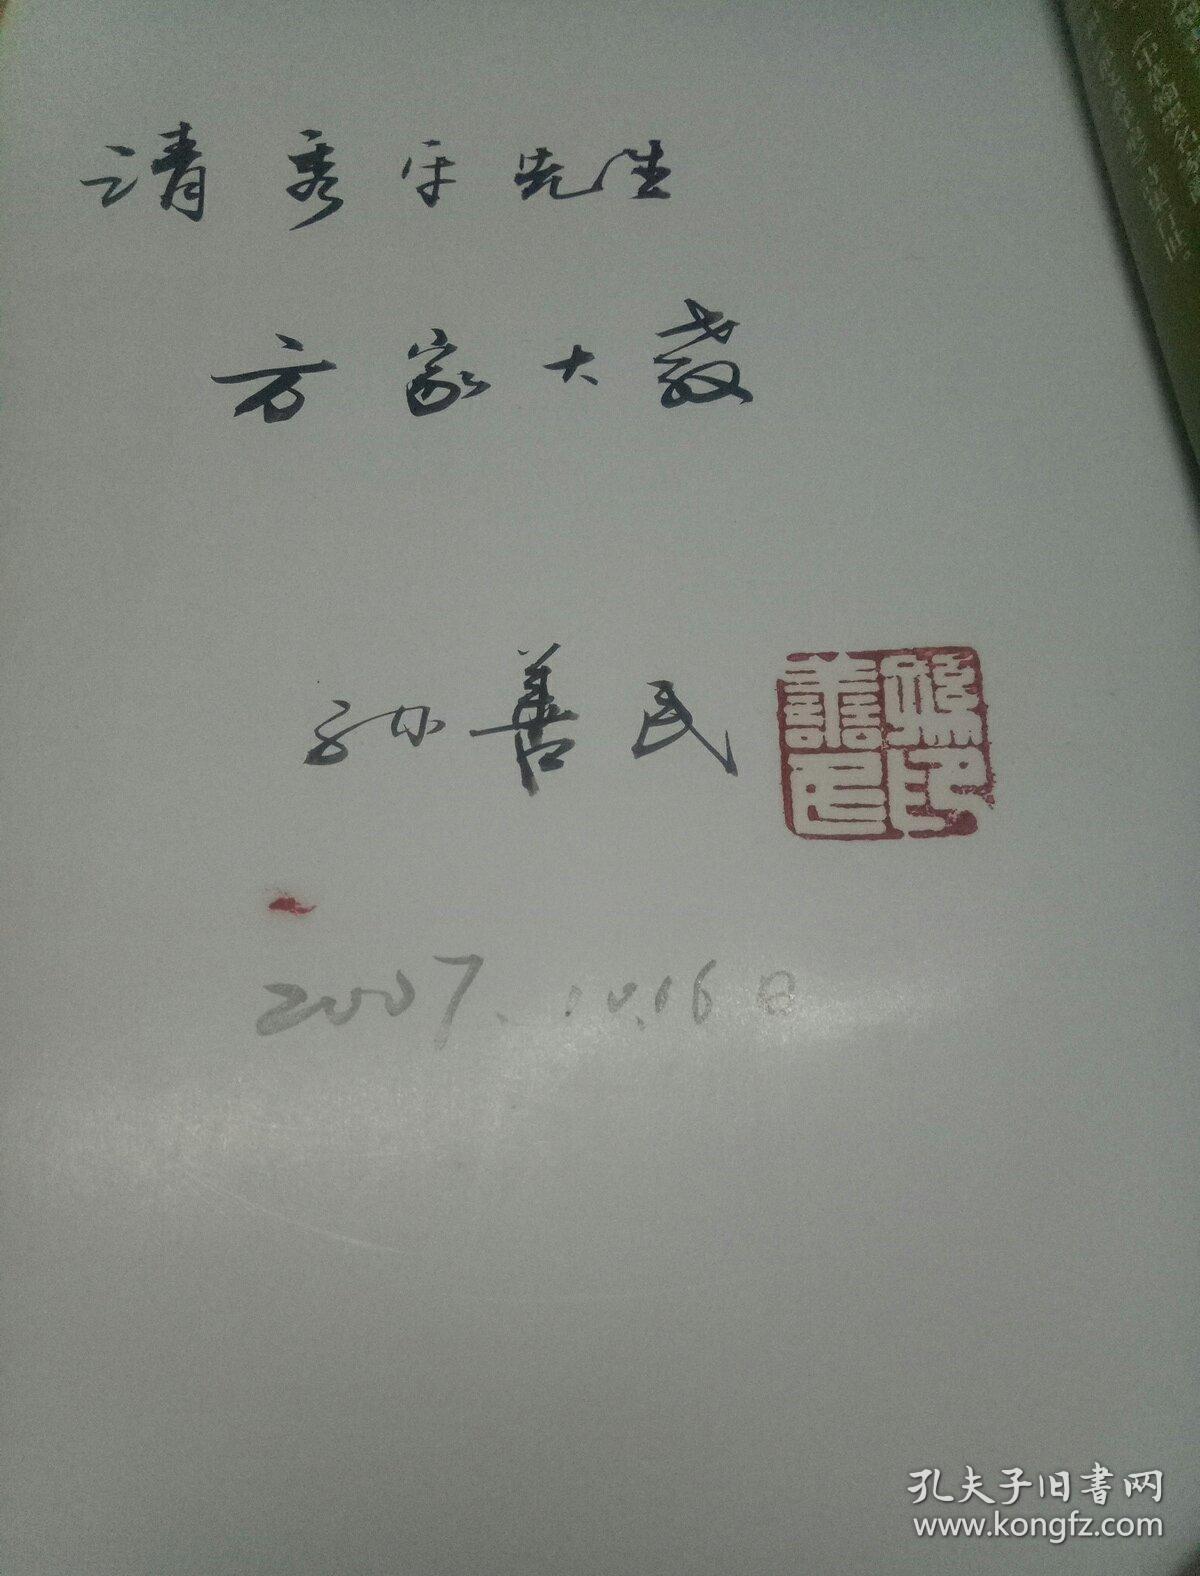 请秀平先生
方家大教
孙善民
孫善民印
2007.10.16日
孔夫子旧书网
www.kongfz.com